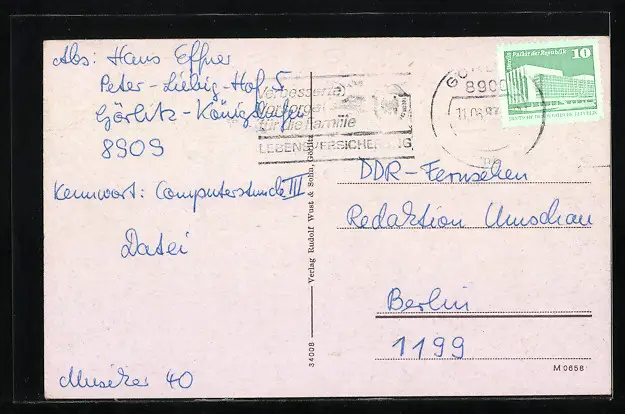 Abs: Hans Effner
Peter-Liebig-Hof 5
Görlitz-Königshufen
8909
Kennwort: Computerstunde III
Datei
Musiker 40
Verbesserte
Vorsorge
für die Familie
LEBENSVERSICHERUNG
8900
11.06.87
Palast der Republik
10
DDR-Fernsehen
Redaktion Umschau
Berlin
1199
34008 Verlag Rudolf Wust & Sohn, Görlitz
M 0656